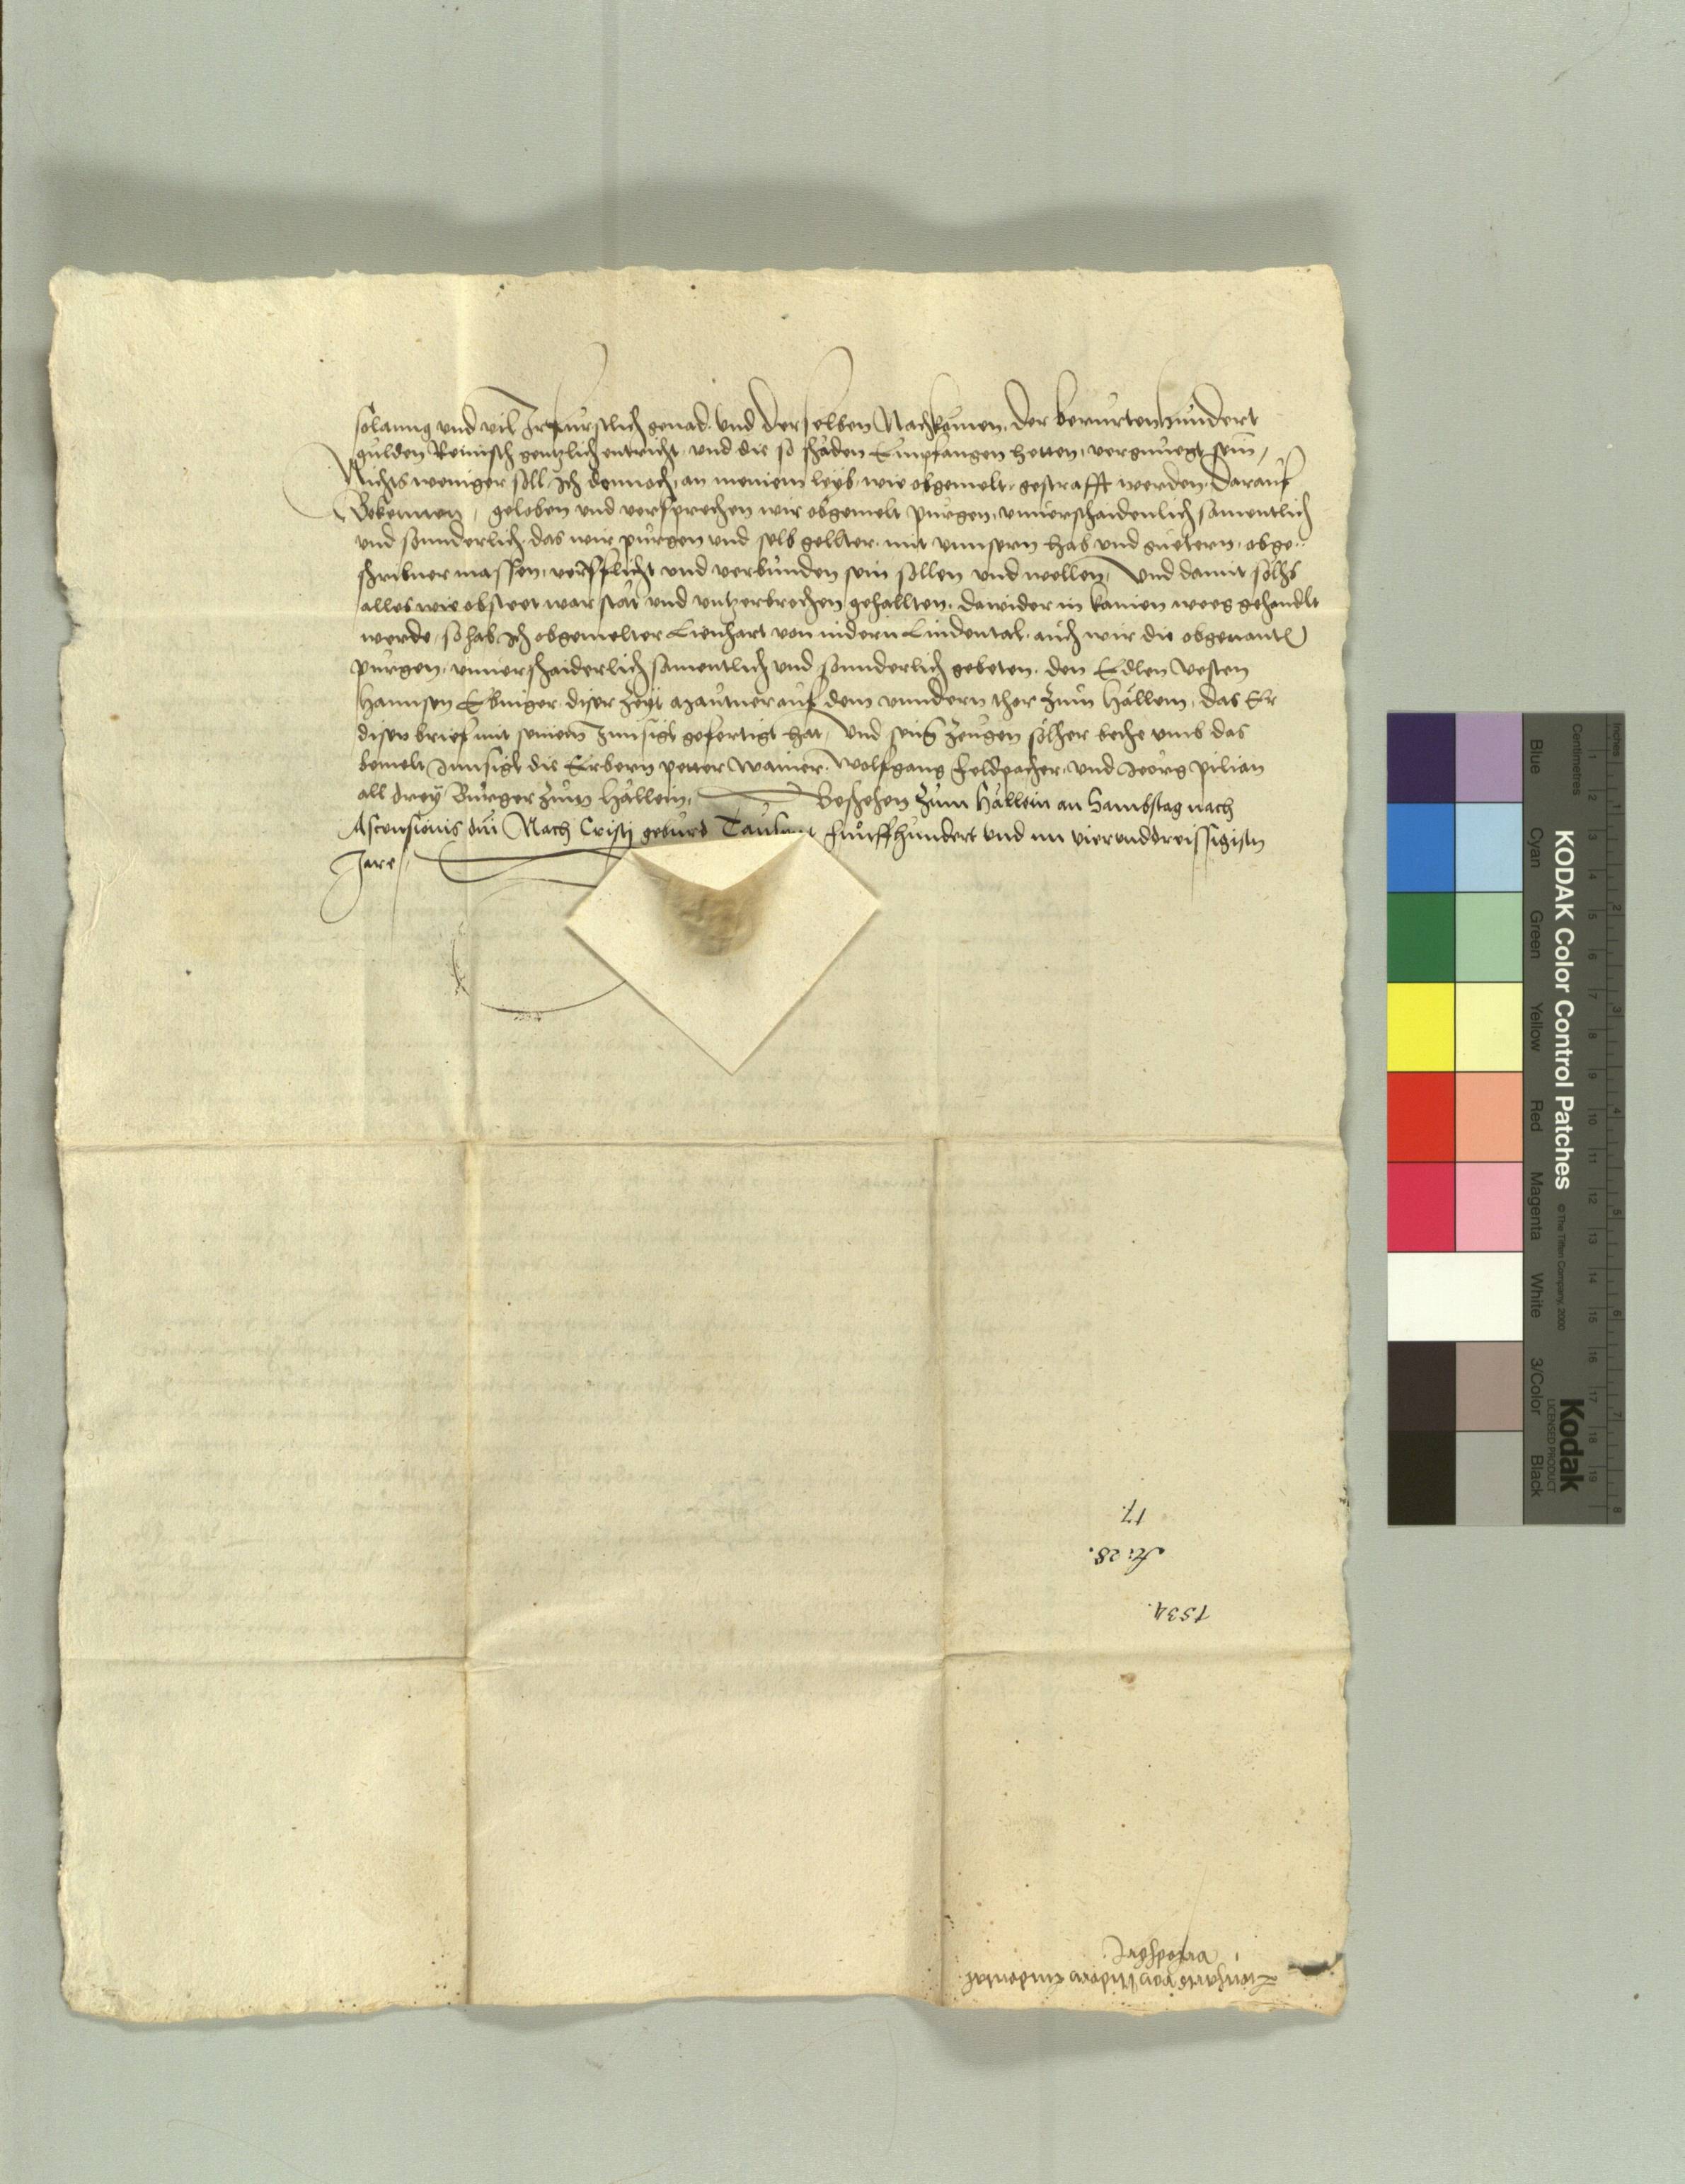 solanng vnd vil Ir furstlich genad. vnd derselben Nachkomen, der berurten hundert
gulden Reinisch gentzlich entricht, vnd die so schaden Empfangen hetten, vergnuegt sein,
Nichts weniger soll Ich dennoch, an meinem leyb, wie obgemelt, gestrafft werden, Darauf
Bekennen, geloben vnd versprechen wir obgemelt purgen, vnuerschaidenlich samentlich
vnd sonnderlich, das wir purgen vnd selb gellter, mit vnnsern hab vnd guetern, obge-
schribner massen, verpflicht vnd verbunden sein sollen vnd wellen, Vnd damit solhs
alles wie obsteet war stät vnd vntzerbrochen gehallten, dawider in kainen weeg gehandlt
werde, so hab Ich obgemelter Lienhart von nidern Lindental, auch wir die obgenanten
purgen, vnuerschaidenlich samentlich vnd sonnderlich gebeten, den Edlen Vesten
Hannsen diser zeyt Mautner auf dem vnndern thor zum Hällein, das Er
disen brief mit seinem Innsigl gefertigt hat, Vnd seins zeugen solher bethe vmb das
bemelt Innsigl die Erbern petter Wolfgang Feldpacher, vnd Jeorg pilian
all drey Burger zum Hällein, Beschehen zum Hällein an Sambstag nach
Ascensionis dni Nach Cristi geburd Tausent funffhundert vnd im vierunddreissigistn
Jare
17.
28.
1534.
Lienharts von Nidern Lindental
vrfedsbrief
KODAK Color Control Patches
© The Tiffen Company, 2000
Kodak
LICENSED PRODUCT
Inches
Centimetres
Blue
Cyan
Green
Yellow
Red
Magenta
White
3/Color
Black